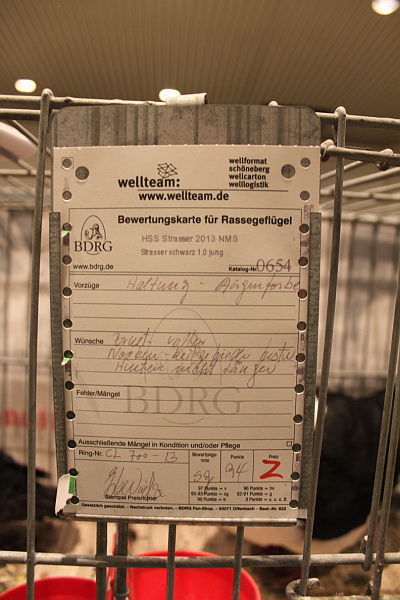 wellteam:
wellformat
schöneberg
wellcarton
welllogistik
www.wellteam.de
BDRG
Bewertungskarte für Rassegeflügel
HSS Strasser 2013 NMS
Strasser schwarz 1,0 jung
www.bdrg.de
Katalog-Nr. 0654
Vorzüge Haltung - Augenfarbe
Wünsche Brust voller
Nacken
Hinten nicht länger
Fehler/Mängel
BDRG
Ausschließende Mängel in Kondition und/oder Pflege
Ring-Nr. CL 700 - 13
Bewertungsnote sg
Punkte 94
Preis Z
Stempel Preisrichter
97 Punkte = v
96 Punkte = hv
93-95 Punkte = sg
92-91 Punkte = g
90 Punkte = b
0 Punkte = u. o. B.
Gesetzlich geschützt. - Nachdruck verboten. - BDRG Fan-Shop. - 63071 Offenbach - Best.-Nr. 822